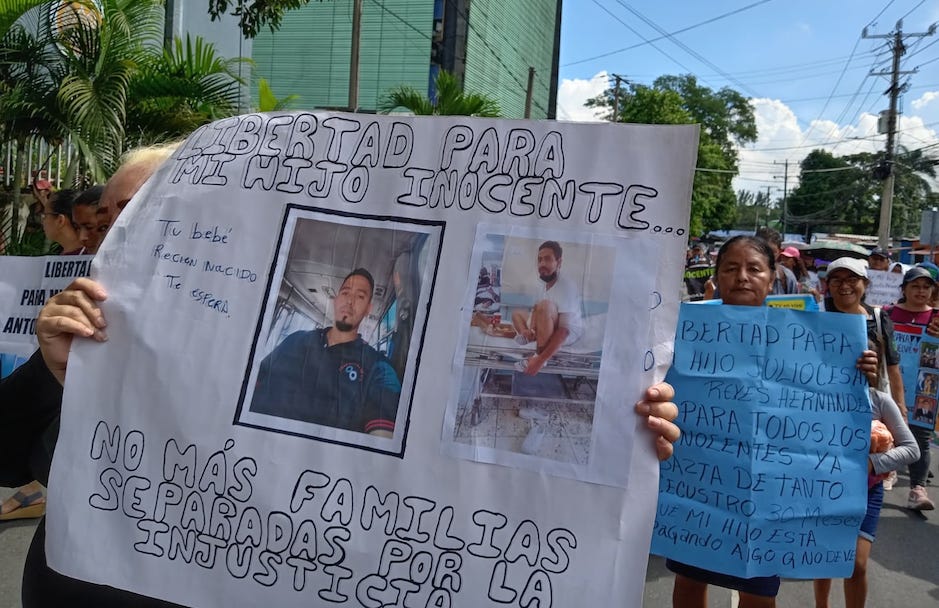 LIBERTAD PARA
MI HIJO INOCENTE...
Tu bebé
Recien inacido
Te espera.
NO MÁS FAMILIAS
SEPARADAS POR LA
INJUSTICIA
LIBERTAD
PARA MI
ANTO
IBERTAD PARA
HIJO JULIOCESAR
REYES HERNANDE
PARA TODOS LOS
NOCENTES YA
BAZTA DE TANTO
SECUSTRO 30 MESES
QUE MI HIJO ESTÁ
Pagando ALGO Q NO DEVE